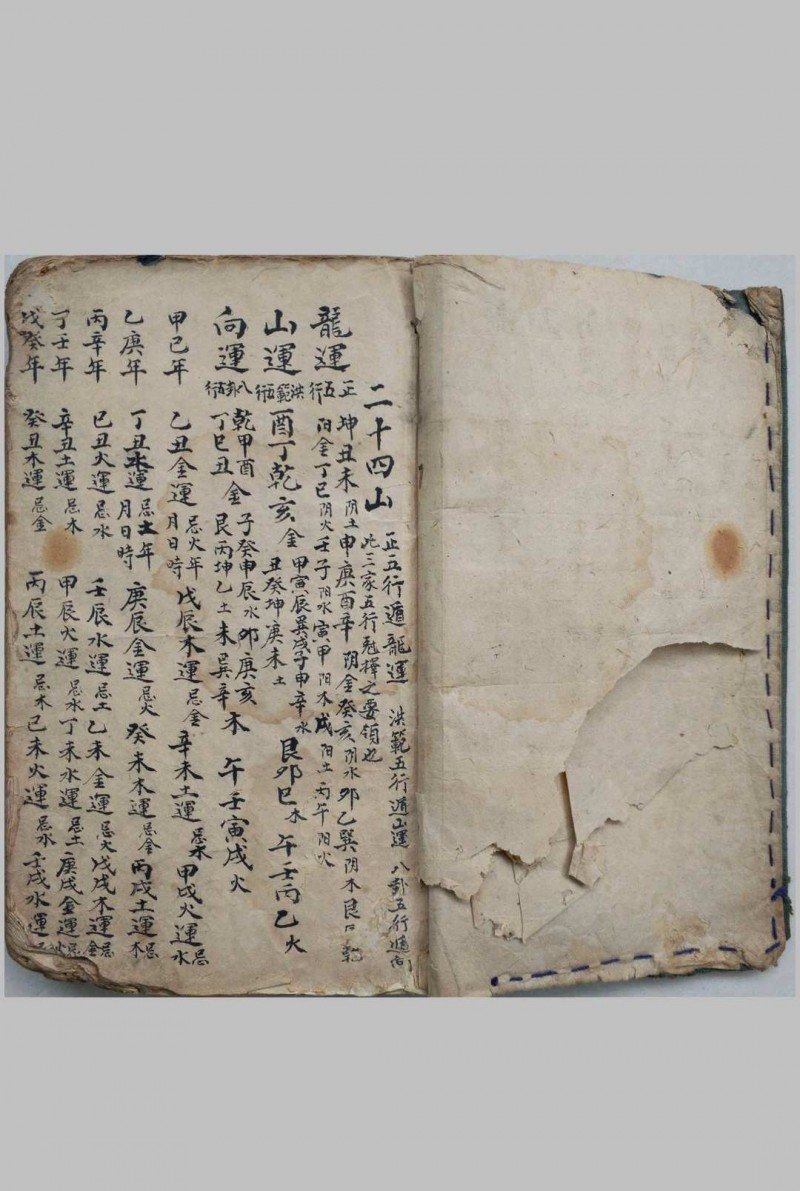 二十四山 正五行遁龍運 洪範五行遁山運 八卦五行遁向
此三家五行尅擇之要領也
龍運 正五行 坤丑未阴土申庚酉辛阴金癸亥阴水卯乙巽阴木艮
阳金丁巳阴火壬子阳水寅甲阳木戍阳土丙午阳火
山運 洪範五行 酉丁乾亥金 甲寅辰巽戍子申辛水 艮卯巳木 午壬丙乙火
丑癸坤庚未土
向運 八卦五行 乾甲酉金 子癸申辰水卯庚亥未木 午壬寅戍火
丁巳丑 艮丙坤乙土未巽辛
甲己年 乙丑金運忌火年月日時 戊辰木運忌金 辛未土運忌木 甲戍火運忌水
乙庚年 丁丑水運忌土年月日時 庚辰金運忌火 癸未木運忌金 丙戍土運忌木
丙辛年 己丑火運忌水 壬辰水運忌土 乙未金運忌火 戊戍木運忌金
丁壬年 辛丑土運忌木 甲辰火運忌水 丁未水運忌土 庚戍金運忌火
戊癸年 癸丑木運忌金 丙辰土運忌木 己未火運忌水 壬戍水運